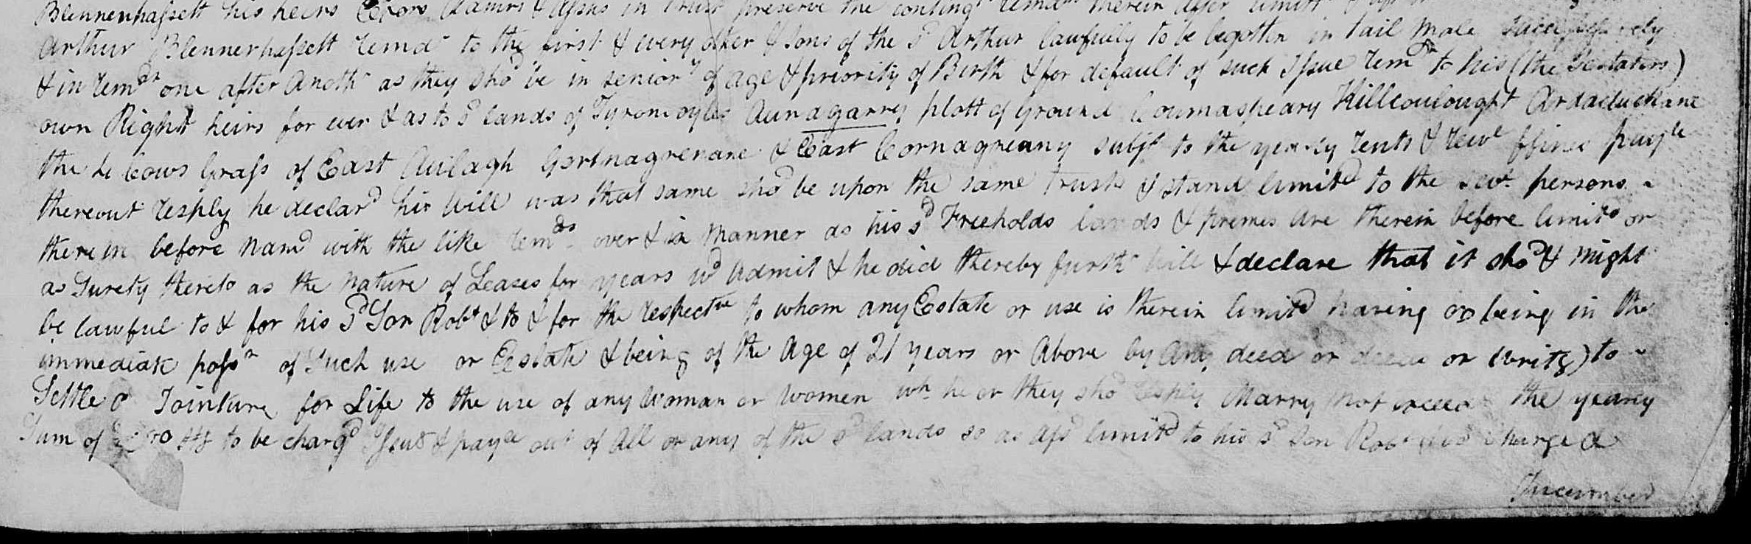 Blennerhassett his heirs Exors Admrs & Assns in trust preserve the conting^t remdr therein after
Arthur Blennerhassett remd^r to the first & every other Sons of the s^d Arthur lawfully to be begotten in tail male successively
& in rem^dr one after Anoth^r as they sho^d be in senior^y of age & priority of Birth & for default of such Issue rem^dr to his (the Testators)
own Right heirs for ever & as to s^d lands of Aunagarry plott of Ground Coumaspeary Killcoulought
the Cows Grass of East Gortnagrenane & East Cornagreany subj^t to the yearly rents & rew^l ffines pay^le
thereout resply he declar^d his Will was that same sho^d be upon the same trusts & stand limit^d to the sev^l persons
therein before nam^d with the like rem^drs over & in Manner as his s^d Freeholds lands & premes are therein before limit^d or
as Surety thereto as the nature of Leases for years w^d Admit & he did thereby furth^r will & declare that it sho^d & might
be lawful to & for his s^d Son Rob^t & to & for the respect^ve to whom any Estate or use is therein limit^d having or being in the
immediate poss^n of Such use or Estate & being of the Age of 21 years or Above by any deed or deeds or writg) to
Settle a Jointure for Life to the use of any Woman or Women wh^h he or they sho^d resply Marry not exceed^g the yearly
Sum of to be charg^d & pay^e out of All or any of the s^d lands so as afs^d limit^d to his s^d Son Rob^t Charged &
Incumber^d